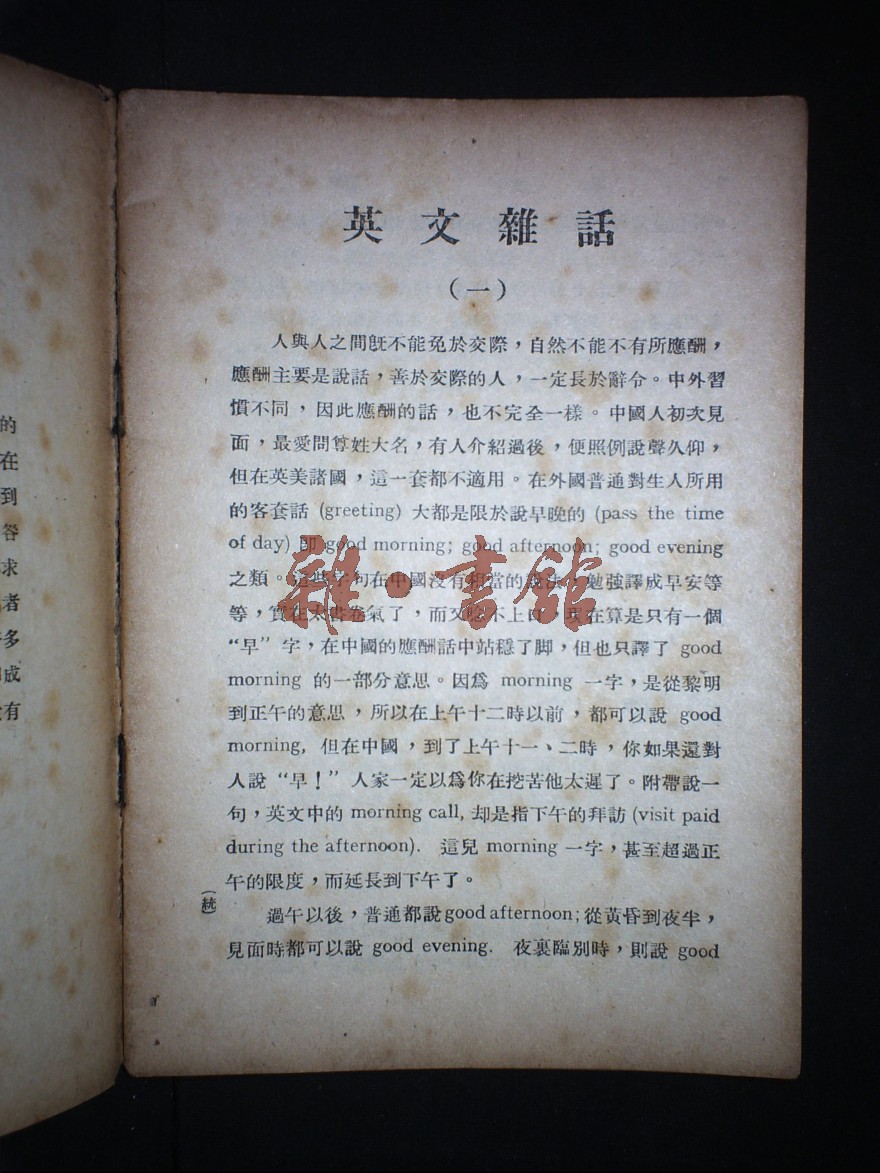 英文雜話
（一）
人與人之間旣不能免於交際，自然不能不有所應酬，
應酬主要是說話，善於交際的人，一定長於辭令。中外習
慣不同，因此應酬的話，也不完全一樣。中國人初次見
面，最愛問尊姓大名，有人介紹過後，便照例說聲久仰，
但在英美諸國，這一套都不適用。在外國普通對生人所用
的客套話 (greeting) 大都是限於說早晚的 (pass the time
of day) 卽 good morning; good afternoon; good evening
之類。這些字句在中國沒有相當的說法，勉強譯成早安等
等，實在太書卷氣了，而又唸不上口。現在算是只有一個
“早”字，在中國的應酬話中站穩了脚，但也只譯了 good
morning 的一部分意思。因爲 morning 一字，是從黎明
到正午的意思，所以在上午十二時以前，都可以說 good
morning, 但在中國，到了上午十一、二時，你如果還對
人說“早！”人家一定以爲你在挖苦他太遲了。附帶說一
句，英文中的 morning call, 却是指下午的拜訪 (visit paid
during the afternoon). 這兒 morning 一字，甚至超過正
午的限度，而延長到下午了。
過午以後，普通都說 good afternoon; 從黃昏到夜半，
見面時都可以說 good evening. 夜裏臨別時，則說 good
（統）
的
在
到
咎
求
者
多
成
有
雜·書館